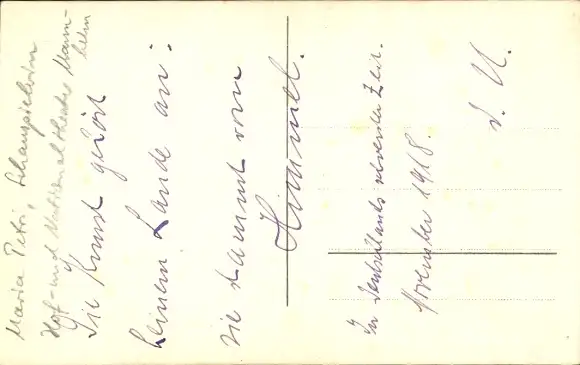 Maria Petri, Schauspielerin
Hof- und Nationaltheater Mannheim
Die Kunst gehört
keinem Lande an:
sie stammt vom
Himmel.
In Deutschlands schwerster Zeit.
November 1918.